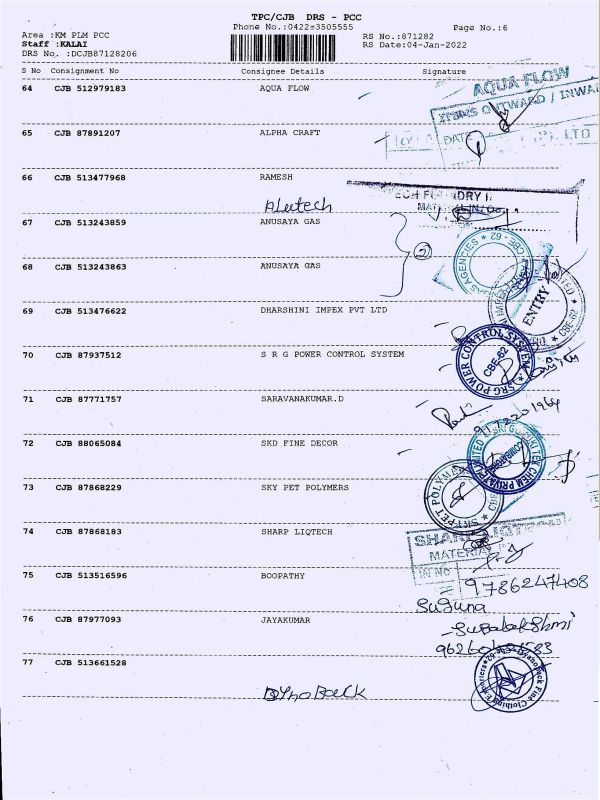 TPC/CJB DRS - PCC
Phone No.:0422=3505555
Page No.:6
Area :KM PLM PCC
RS No.:871282
Staff :KALAI
RS Date:04-Jan-2022
DRS No. :DCJB87128206
S No Consignment No Consignee Details Signature
64 CJB 512979183 AQUA FLOW
AQUA FLOW
ITEMS OUTWARD / INWA
65 CJB 87891207 ALPHA CRAFT
DATE
LTD
66 CJB 513477968 RAMESH
Alutech
67 CJB 513243859 ANUSAYA GAS
2
AGENCIES ★ CBE-62
68 CJB 513243863 ANUSAYA GAS
ENTRY
CBE-62
69 CJB 513476622 DHARSHINI IMPEX PVT LTD
70 CJB 87937512 S R G POWER CONTROL SYSTEM
SRG POWER CONTROL SYSTEM
CBE-62
71 CJB 87771757 SARAVANAKUMAR.D
72 CJB 88065084 SKD FINE DECOR
CHEM PRIVATE LIMITED
73 CJB 87868229 SKY PET POLYMERS
SKY PET POLYM
74 CJB 87868183 SHARP LIQTECH
SHARP LIQTECH
MATERIAL
IN No
75 CJB 513516596 BOOPATHY
9786247408
Suguna
76 CJB 87977093 JAYAKUMAR
77 CJB 513661528
DynoBack